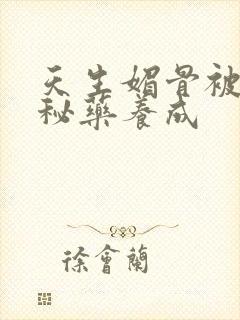 天生媚骨被
秘藥養成
徐會蘭